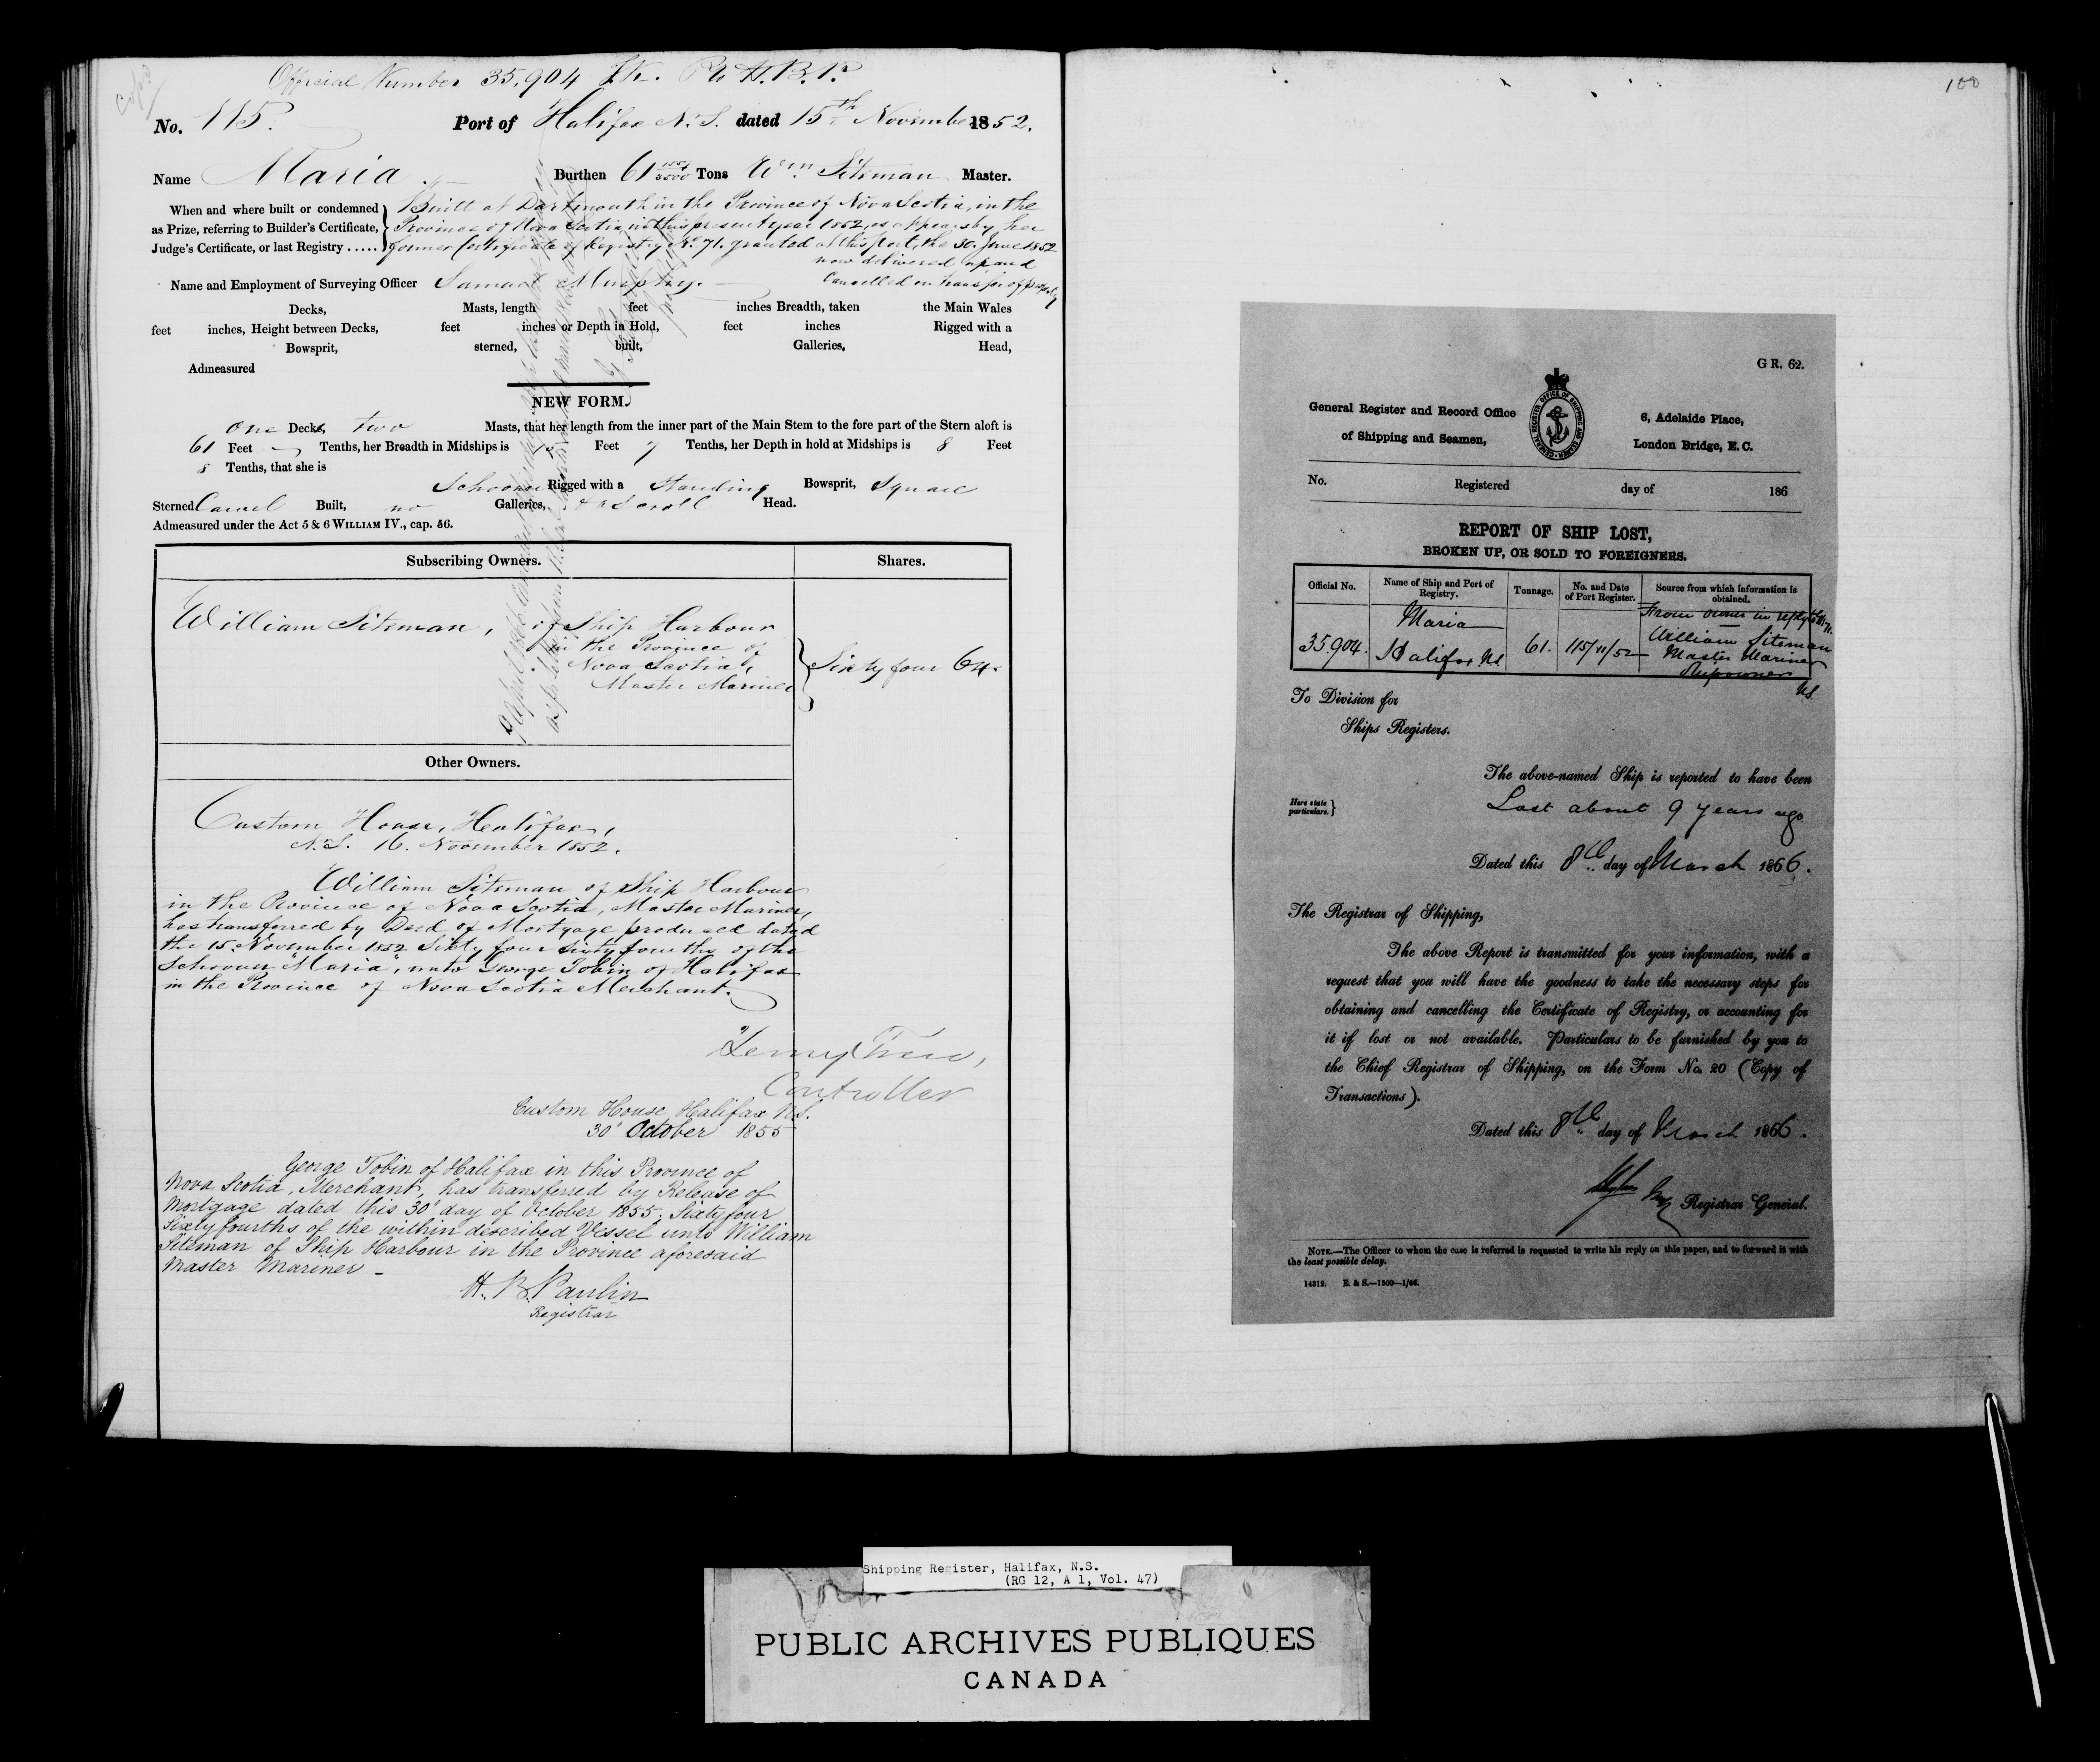 Official Number 35,904
No. 115. Port of Halifax N.S. dated 15th November 1852.
Name Maria Burthen 61 Tons Wm Siteman Master.
When and where built or condemned
as Prize, referring to Builder's Certificate,
Judge's Certificate, or last Registry .....
Built at Dartmouth in the Province of Nova Scotia, in the
Province of Nova Scotia in this present year 1852, as appears by her
former Certificate of Registry No. 71. granted at this Port, the 30. June 1852
now delivered up and
Cancelled on transfer of property
Name and Employment of Surveying Officer Samuel Murphy.
Decks, Masts, length feet inches Breadth, taken the Main Wales
feet inches, Height between Decks, feet inches or Depth in Hold, feet inches Rigged with a
Bowsprit, sterned, built, Galleries, Head,
Admeasured
NEW FORM.
One Decks, two Masts, that her length from the inner part of the Main Stem to the fore part of the Stern aloft is
61 Feet Tenths, her Breadth in Midships is 15 Feet 7 Tenths, her Depth in hold at Midships is 8 Feet
8 Tenths, that she is
Schooner Rigged with a Standing Bowsprit, Square
Sterned Carvel Built, no Galleries, & a Scroll Head.
Admeasured under the Act 5 & 6 WILLIAM IV., cap. 56.
Subscribing Owners. Shares.
William Siteman, of Ship Harbour
in the Province of
Nova Scotia,
Master Mariner
Sixty four 64.
Other Owners.
Custom House, Halifax,
N.S. 16. November 1852.
William Siteman of Ship Harbour
in the Province of Nova Scotia, Master Mariner,
has transferred by Deed of Mortgage produced dated
the 15. November 1852 Sixty four Sixty fourths of the
Schooner "Maria", unto George Tobin of Halifax
in the Province of Nova Scotia Merchant.
Controller
Custom House Halifax N.S.
30' October 1855
George Tobin of Halifax in this Province of
Nova Scotia, Merchant, has transferred by Release of
Mortgage dated this 30' day of October 1855, Sixty four
Sixty fourths of the within described Vessel unto William
Siteman of Ship Harbour in the Province aforesaid
Master Mariner -
H. B. Paulin
Registrar
100
G R. 62.
General Register and Record Office
of Shipping and Seamen,
GENERAL REGISTER OFFICE OF SHIPPING AND SEAMEN
6, Adelaide Place,
London Bridge, E.C.
No. Registered day of 186
REPORT OF SHIP LOST,
BROKEN UP, OR SOLD TO FOREIGNERS.
Official No. Name of Ship and Port of Registry. Tonnage. No. and Date of Port Register. Source from which information is obtained.
35.904. Maria Halifax NS 61. 115/11/52 From owner in reply to
William Siteman
Master Mariner
Shipowner
NS
To Division for
Ships Registers.
The above-named Ship is reported to have been
Here state particulars. } Lost about 9 years ago
Dated this 8th day of March 1866.
The Registrar of Shipping,
The above Report is transmitted for your information, with a
request that you will have the goodness to take the necessary steps for
obtaining and cancelling the Certificate of Registry, or accounting for
it if lost or not available. Particulars to be furnished by you to
the Chief Registrar of Shipping, on the Form No. 20 (Copy of
Transactions).
Dated this 8th day of March 1866.
Registrar General.
NOTE.—The Officer to whom the case is referred is requested to write his reply on this paper, and to forward it with
the least possible delay.
14312. E. & S.—1500—1/66.
Shipping Register, Halifax, N.S.
(RG 12, A 1, Vol. 47)
PUBLIC ARCHIVES PUBLIQUES
CANADA